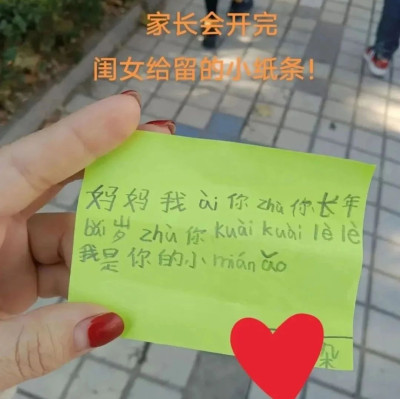 家长会开完
闺女给留的小纸条！
妈妈我ài你zhù你长年
bǎi岁zhù你kuài kuài lè lè
我是你的小mián ǎo
朵